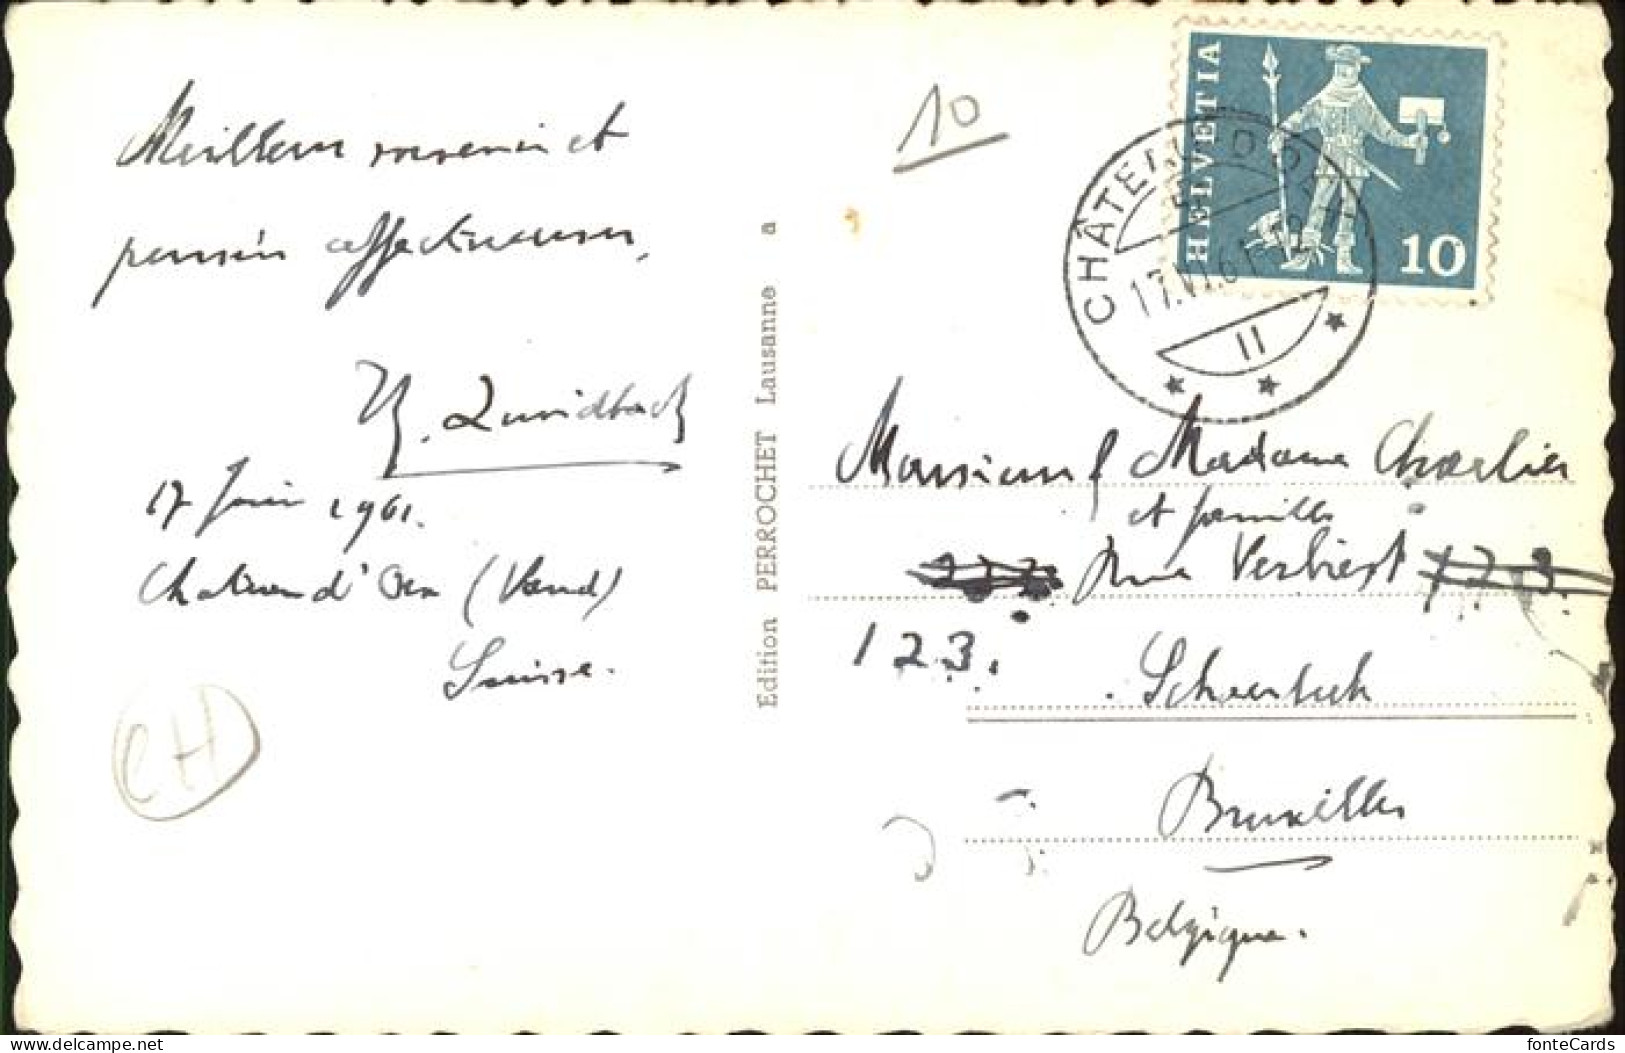 Meilleurs souvenirs et
pensées affectueuses.
17 Juin 1961.
Chateau d'Oex (Vaud)
Suisse.
CH
Edition PERROCHET Lausanne a
10
HELVETIA
10
CHÂTEAU-D'OEX
17.VI.61
11
Monsieur & Madame Charlier
et famille
Rue Verbiest 123
123.
Schaerbeek
Bruxelles
Belgique.
www.delcampe.net
fonteCards